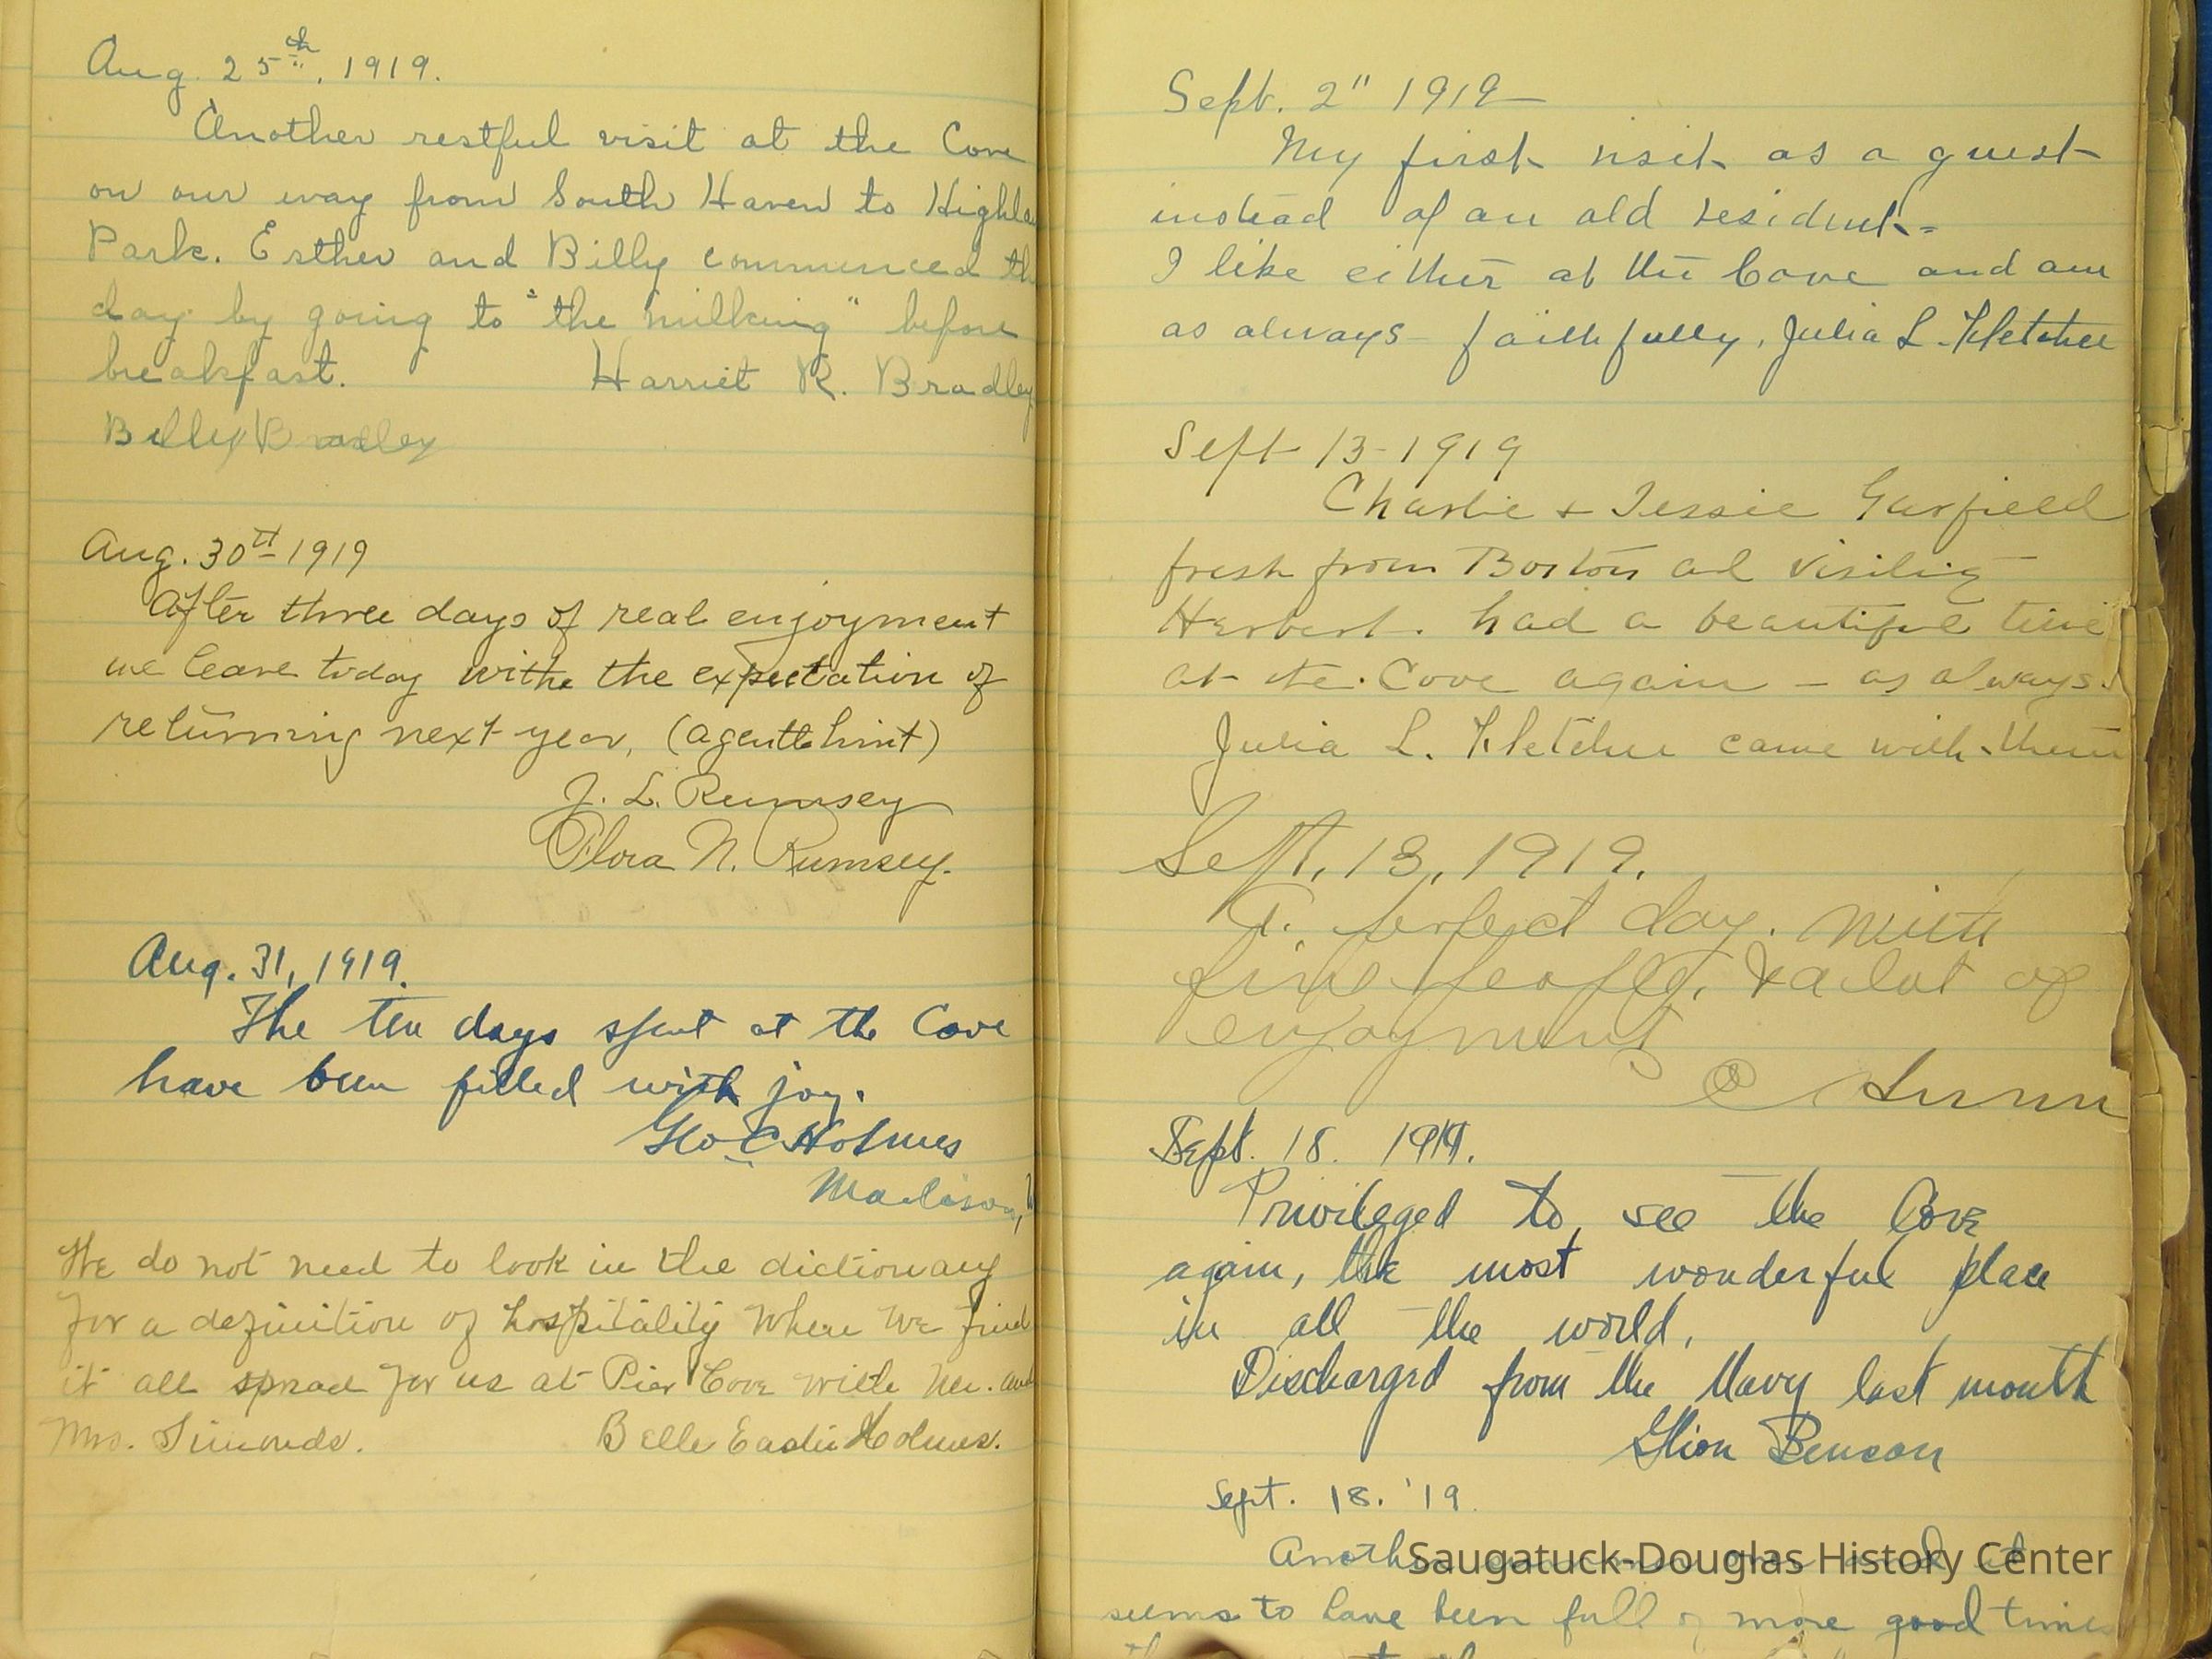 Aug. 25th, 1919.
Another restful visit at the Cove
on our way from South Haven to Highla
Park. Esther and Billy commenced th
day by going to "the milking" before
breakfast. Harriet R. Bradley
Billy Bradley
Aug. 30th 1919
After three days of real enjoyment
we leave today withe the expectation of
returning next year, (a gentle hint)
J. L. Rumsey
Flora N. Rumsey.
Aug. 31, 1919.
The ten days spent at the Cove
have been filled with joy.
Geo C Holmes
Madison,
We do not need to look in the dictionary
for a definition of hospitality where we find
it all spread for us at Pier Cove with Mr. and
Mrs. Simonds. Belle Holmes.
Sept. 2" 1919
My first visit as a guest
instead of an old resident-
I like either at the Cove and am
as always faithfully, Julia L. Fletcher
Sept 13-1919
Charlie + Jessie Garfield
fresh from Boston and visiting
Herbert. had a beautiful time
at the Cove again - as always.
Julia L. Fletcher came with them
Sept, 13, 1919.
A perfect day. With
fine people, & a lot of
enjoyment
Sept. 18. 1919.
Privileged to see the Cove
again, the most wonderful place
in all the world.
Discharged from the Navy last month
Benson
Sept. 18. '19.
Another summer over and it
Saugatuck-Douglas History Center
seems to have been full of more good times